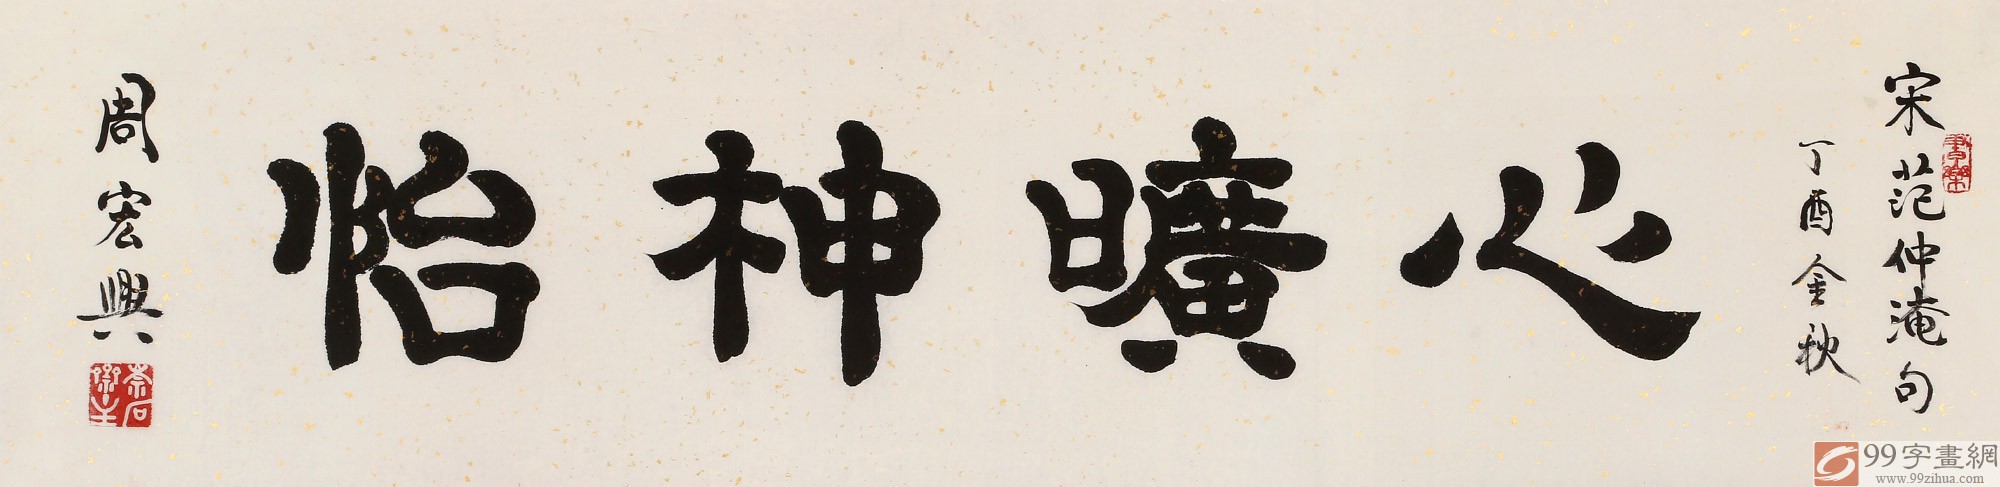 宋范仲淹句
丁酉金秋
心曠神怡
周宏興
99字畫網
www.99zihua.com